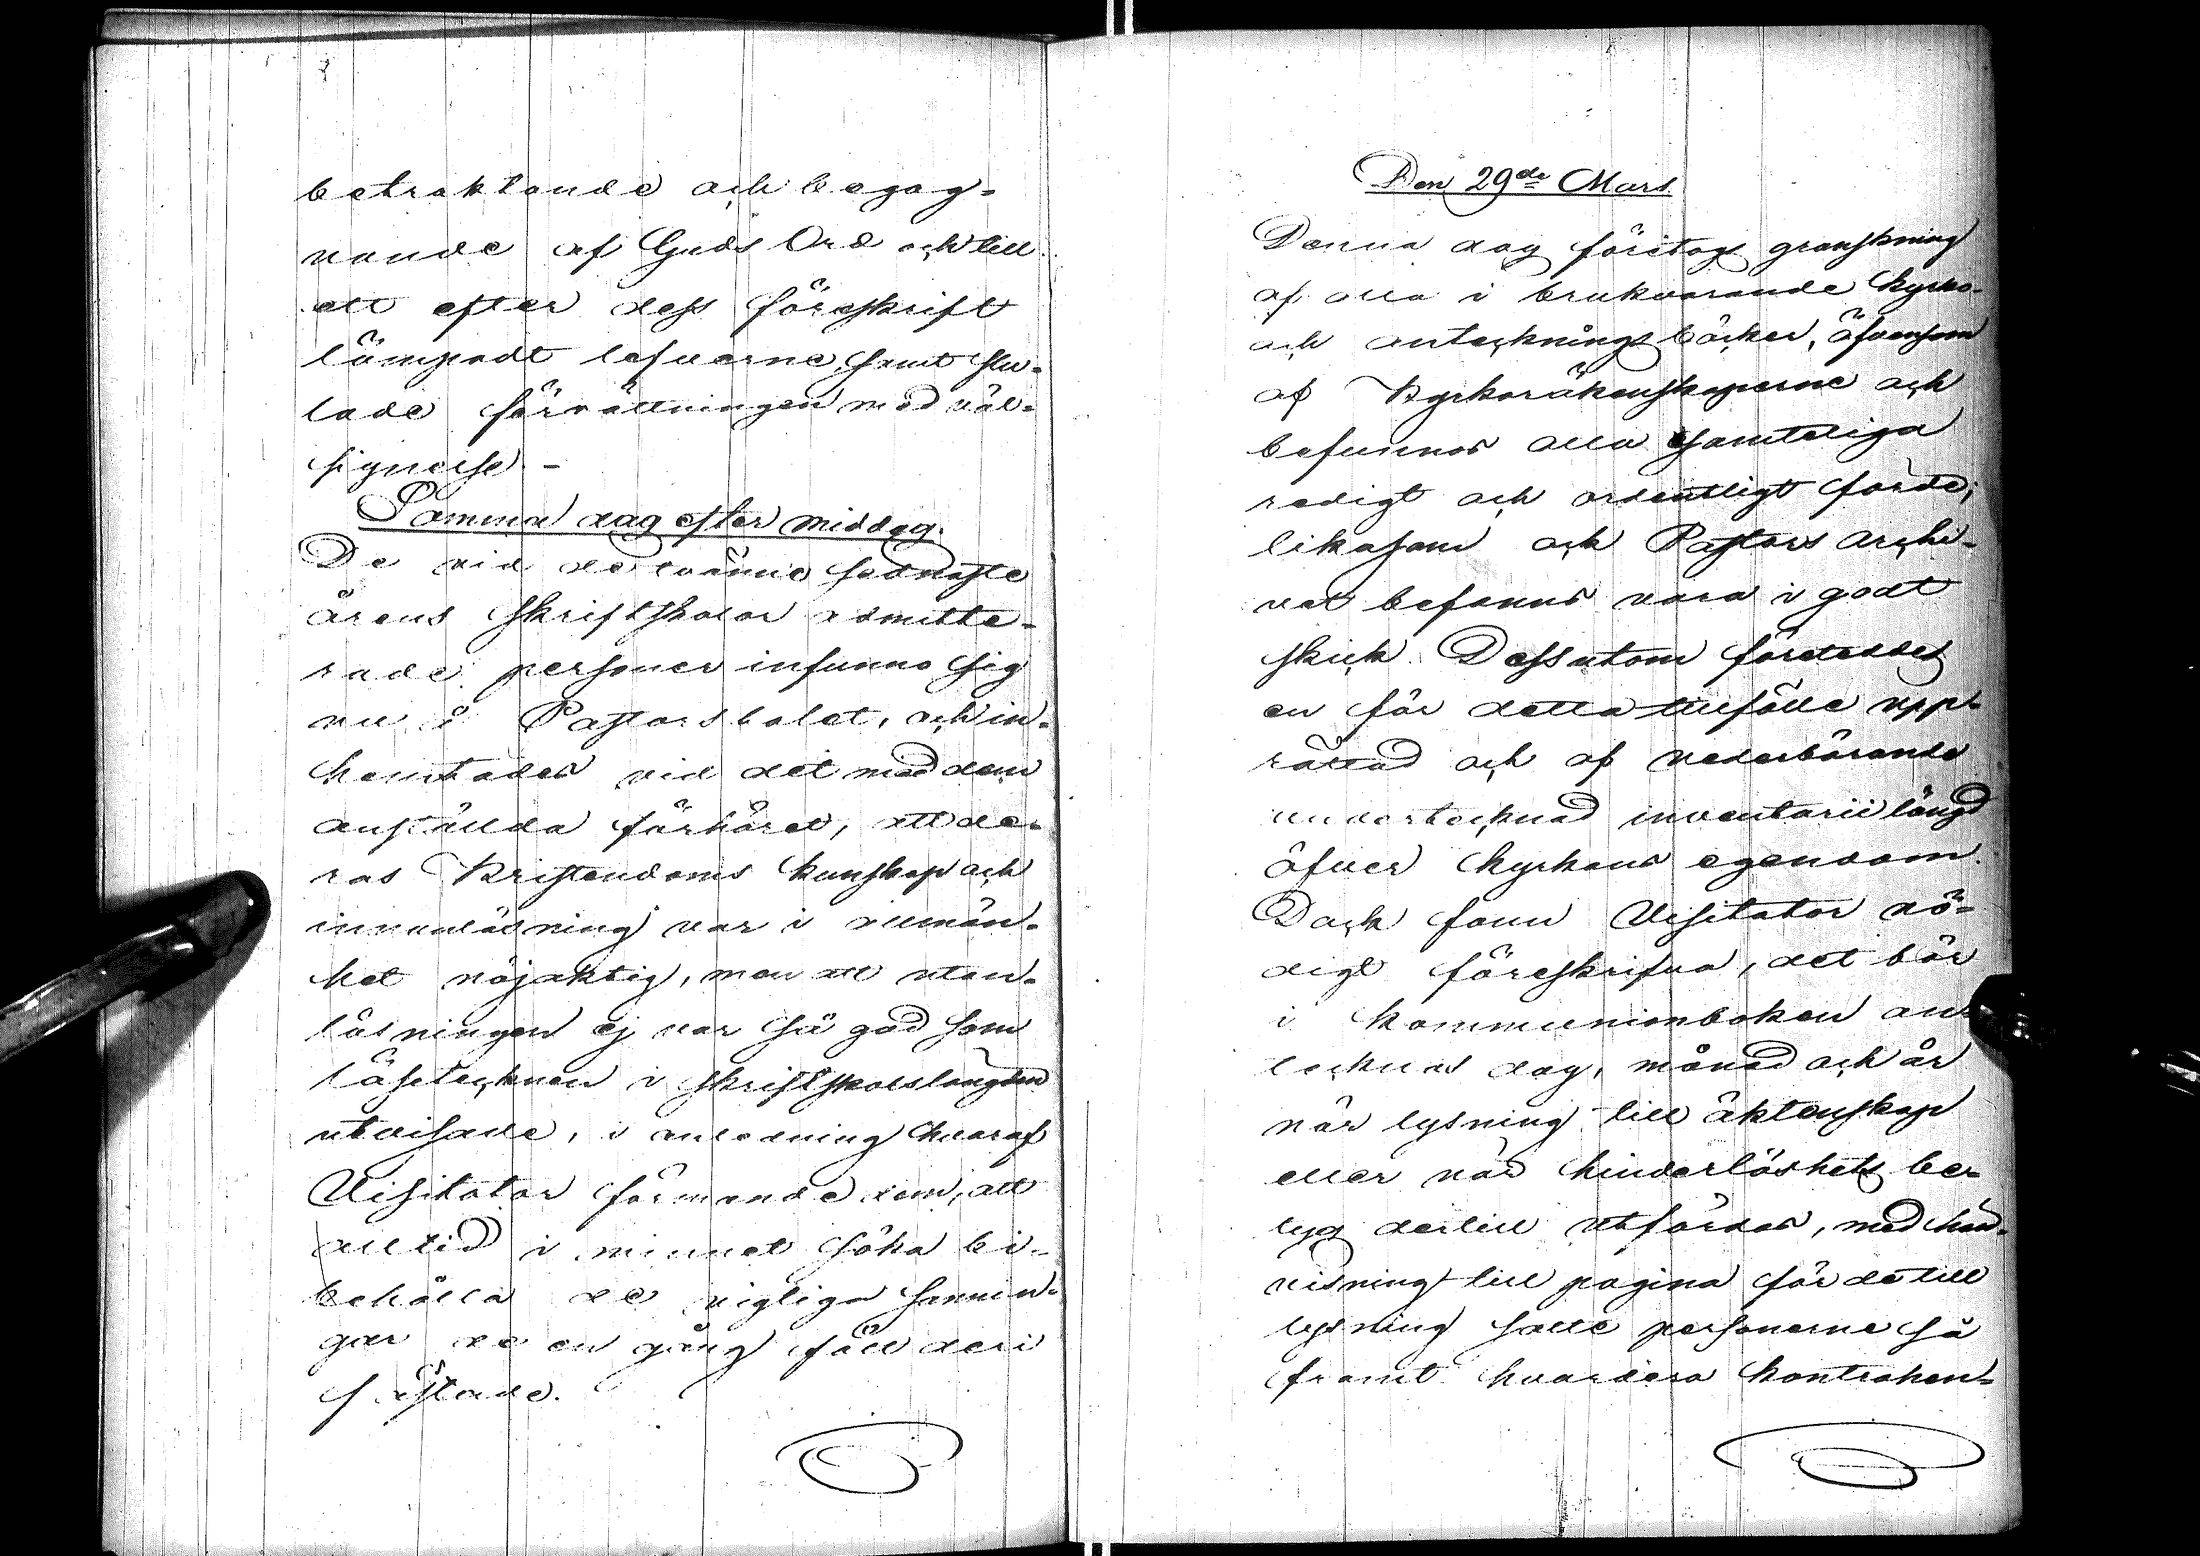 betraktande och begag-
nande af Guds Ord och till
ett efter dess föreskrift
lämpadt lefverne, samt slu-
tade förrättningen med väl-
signelse. -
Samma dag efter middag.
De vid de tvänne sednaste
årens skriftskolor admitte-
rade personer infunno sig
nu å Pastorsbolet, och in-
hemtades vid det med dem
anställda förhöret, att de-
ras Kristendoms kunskap och
innanläsning var i allmän-
het nöjaktig, men att utan-
läsningen ej var så god som
läsetecknen i skriftskolslängden
utvisade, i anledning hvaraf
Visitator förmanade dem, att
alltid i minnet söka bi-
behålla de vigtiga sannin-
gar de en gång fått deri
fästade.
Den 29de Mars.
Denna dag företogs granskning
af alla i brukvarande kyrko-
och anteckningsböcker, äfvensom
af Kyrkoräkenskaperne och
befunnos alla samteliga
redigt och ordentligt förde;
likasom och Pastors archi-
vet befanns vara i godt
skick. Dessutom företeddes
en för detta tillfälle upp-
rättad och af vederbörande
undertecknad inventarii längd
öfver kyrkans egendom.
Dock fann Visitator nö-
digt föreskrifva, det bör
i kommunionboken an-
tecknas dag, månad och år
när lysning till äktenskap
eller när hinderlöshets be-
tyg dertill utfärdas, med hän-
visning till pagina för de till
lysning satte personerne så
framt hvardera kontrahen-